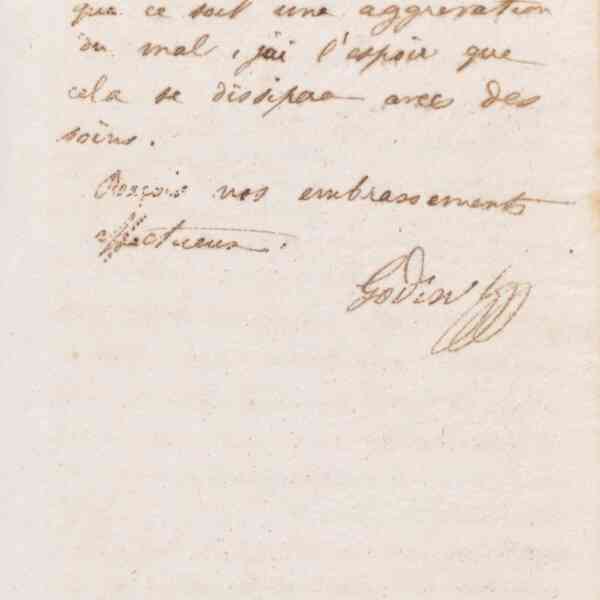 que ce soit une aggravation
du mal, j'ai l'espoir que
cela se dissipera avec des
soins.
Reçois nos embrassements
affectueux.
Godin